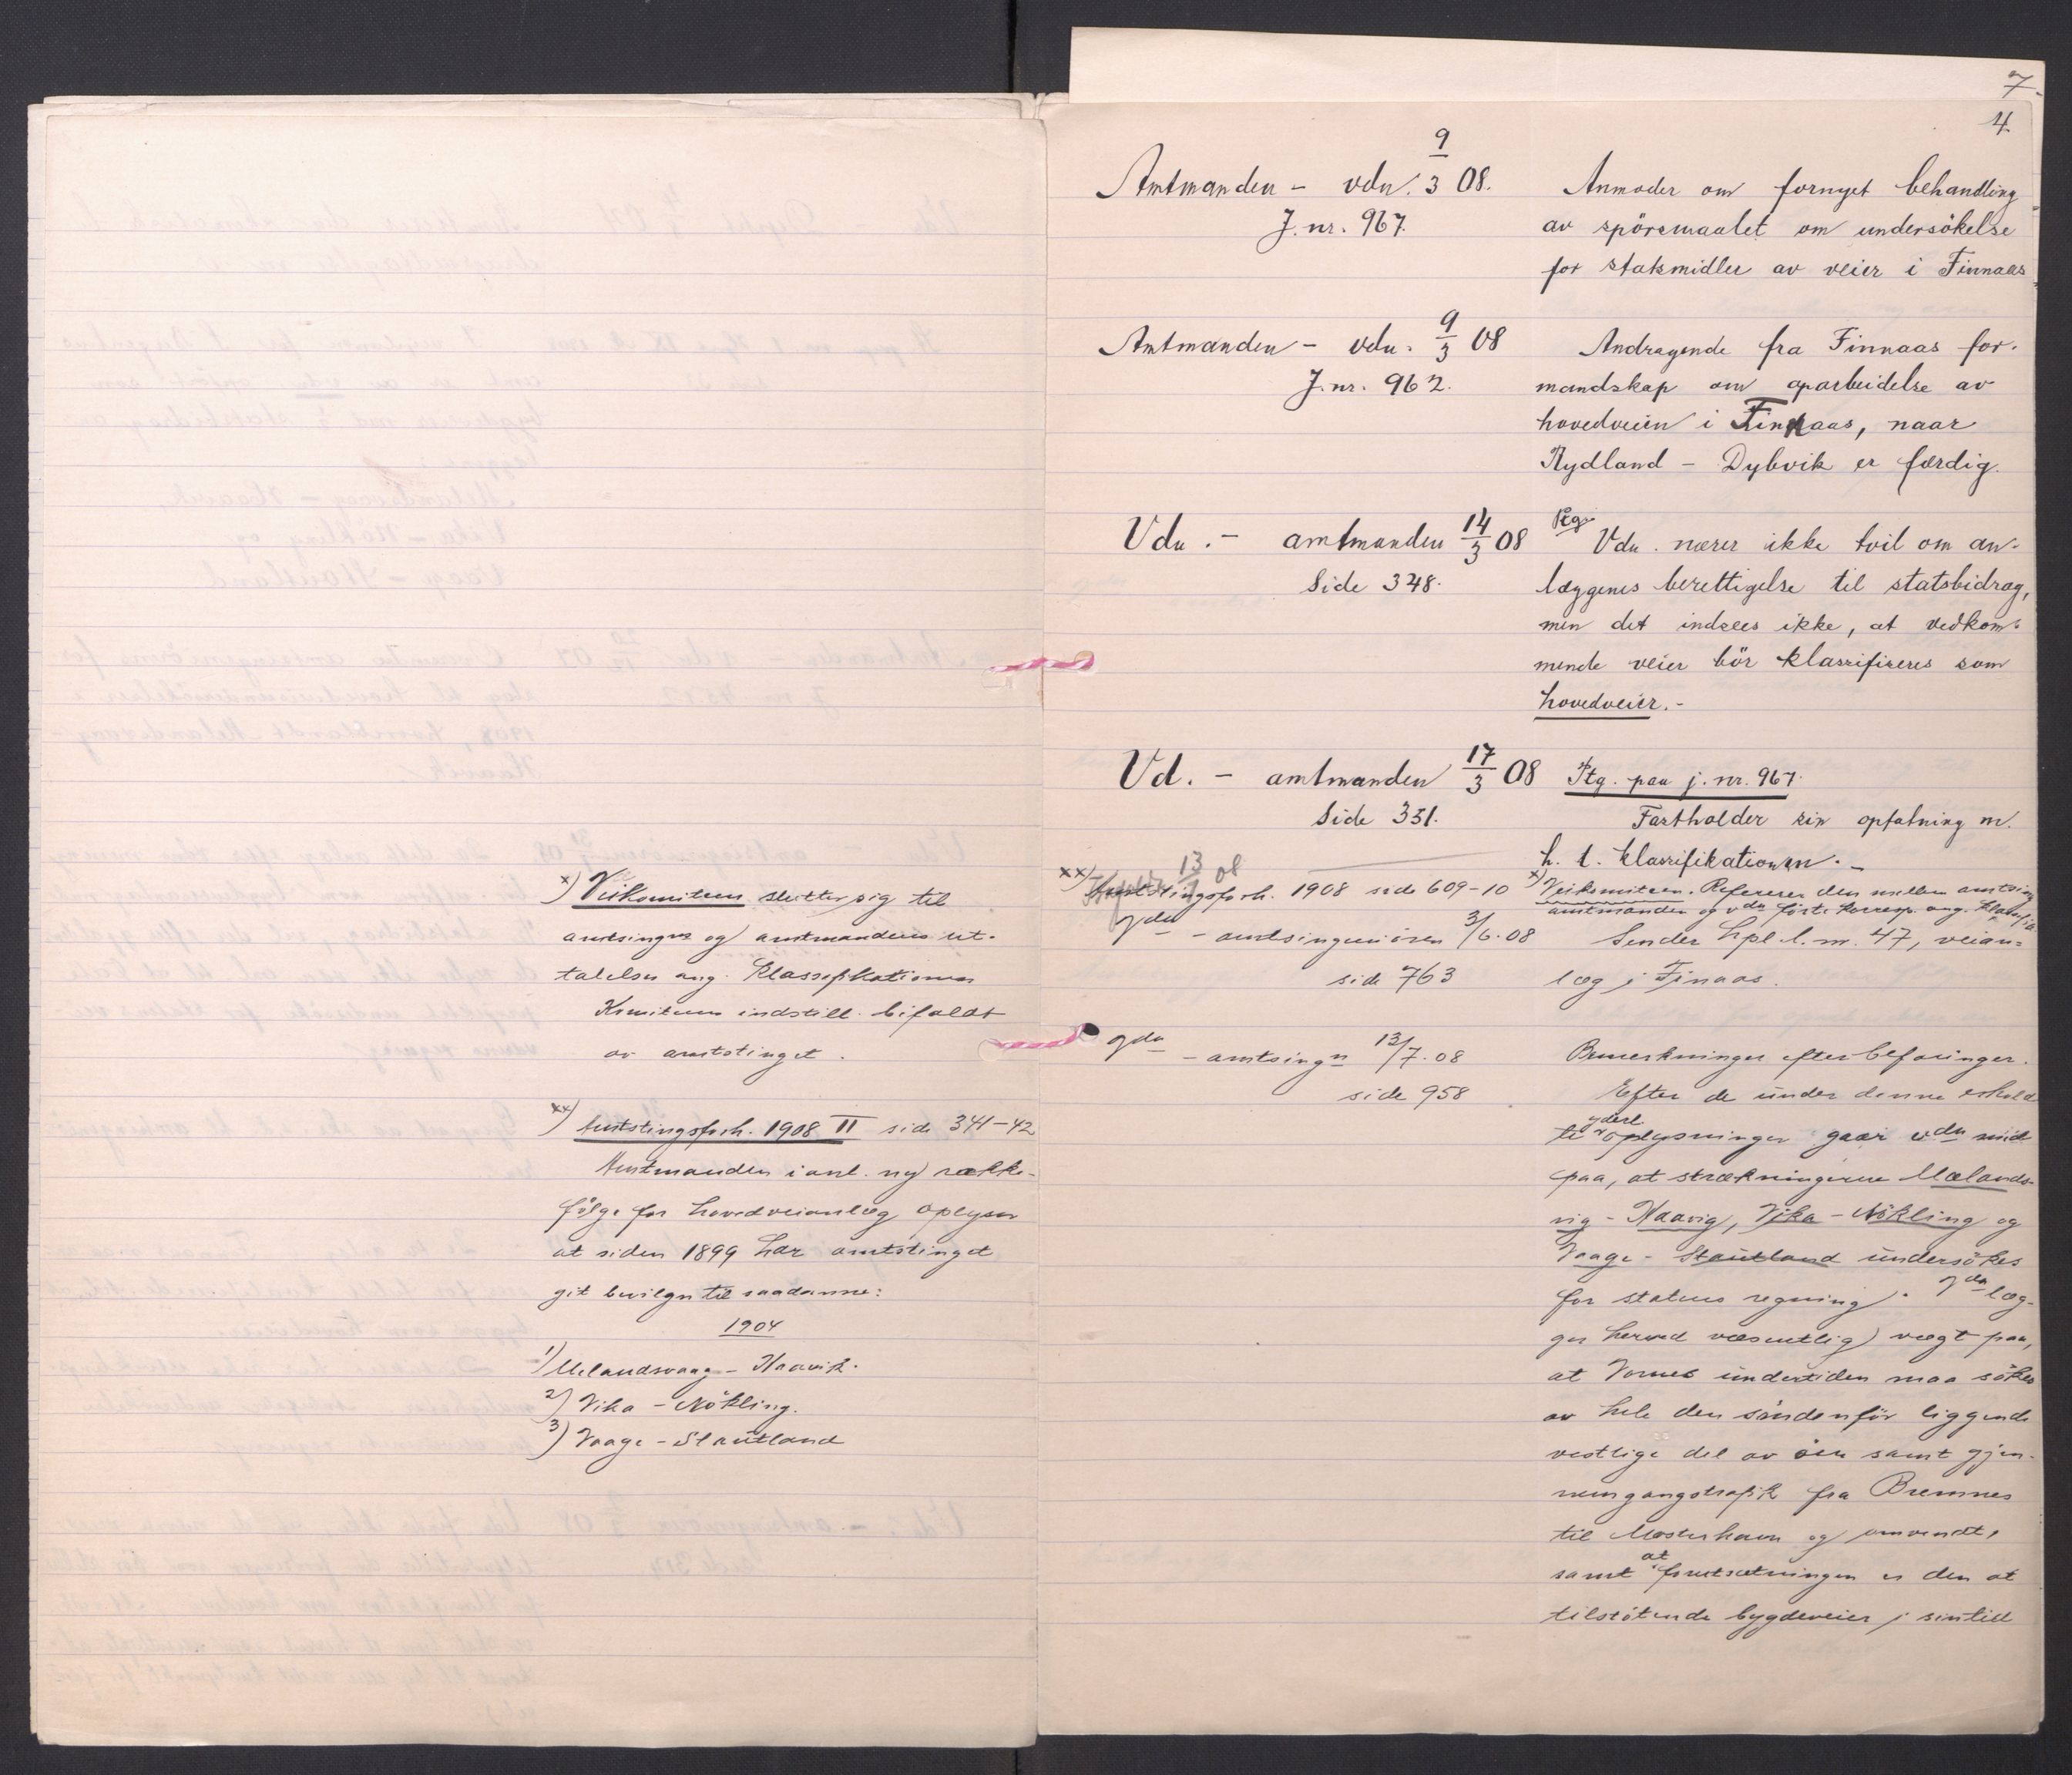 x) Veikomiteen slutter sig til
amtsingns og amtmandens ut-
talelser ang. klassifikationen
Komiteens indstill. bifaldt
av amtstinget.
xx) Amtstingsforh. 1908 II side 341-42
Amtmanden i anl. ny række-
følge for hovedveianlæg oplyser
at siden 1899 har amtstinget
git bevilgn til saadanne:
1904
1) Melandsvaag - Haavik.
2) Vika - Nökling.
3) Vaage - Stautland
7.
4
Amtmanden - vdn. 9/3 08.
J. nr. 967.
Anmoder om fornyet behandling
av spörsmaalet om undersökelse
for statsmidler av veier i Finnaas
Amtmanden - vdn. 9/3 08
J. nr. 962.
Andragende fra Finnaas for-
mandskap om oparbeidelse av
hovedveien i Finnaas, naar
Rydland - Dybvik er færdig.
Vdn. - amtmanden 14/3 08
Side 348.
Ptg.
Vdn. nærer ikke tvil om an-
læggenes berettigelse til statsbidrag,
men det indsees ikke, at vedkom-
mende veier bör klassifiseres som
hovedveier.-
Vd. - amtmanden 17/3 08
Side 351.
Ptg. paa j. nr. 967.
Fastholder sin opfatning m.
h. t. klassifikationen. -
13/7 08
xx) Amtstingsforh. 1908 side 609-10
x) Veikomiteen. Refererer den mellem amtsing
amtmanden og vdn förte korresp. ang. klassifik
Vdn - amtsingeniören 3/6.08
side 763
Sender hpl. l. nr. 47, veian-
læg i Finaas.
Vdn - amtsingn 13/7.08
side 958
Bemerkninger efter befaringer.
Efter de under denne erhold
te yderl. oplysninger gaar vdn med
paa, at strækningerne Mælands-
vig - Haavig, Vika - Nökling og
Vaage - Stautland undersökes
for statens regning. Vdn læg-
ger herved væsentlig vægt paa,
at Vornes undertiden maa sökes
av hele den söndenför liggende
vestlige del av öen samt gjen-
nemgangstrafik fra Bremnes
til Mosterhavn og omvendt,
samt at forutsætningen er den at
tilstötende bygdeveier i sin tid